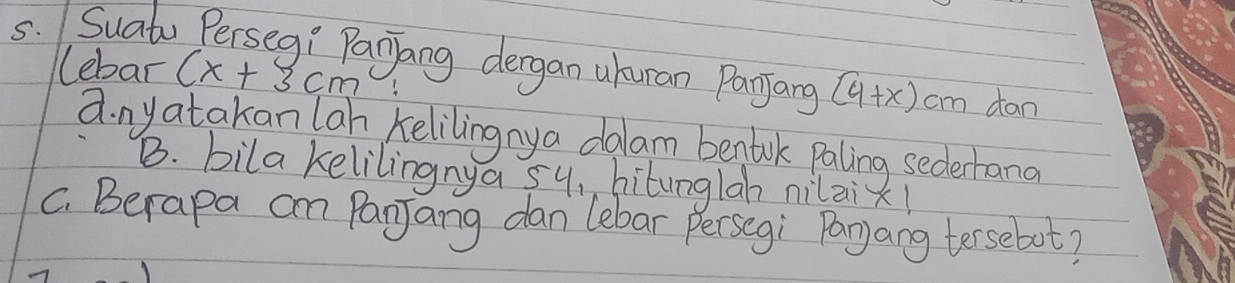 5. Suatu Persegi Panjang dengan ukuran Panjang (4+x) cm dan
lebar (x + 3 cm!
a. nyatakan lah kelilingnya dalam bentuk paling sederhana
B. bila kelilingnya 54, hitunglah nilai x!
C. Berapa cm Panjang dan lebar persegi Panjang tersebut?